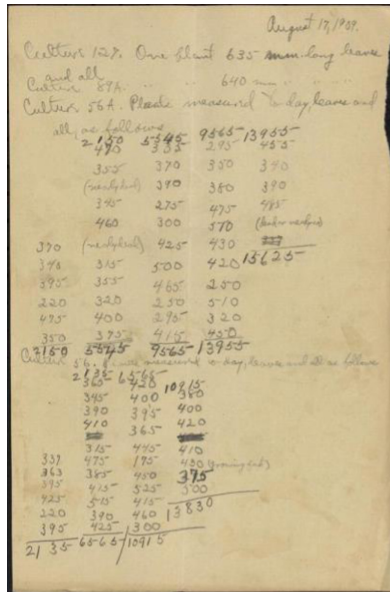 August 17, 1939.
Culture 127. One plant 635 mm long leaves
and all
Culture 89A. " " 640 mm " " "
Culture 56A. Plants measured to day, leaves and
all, as follows
2150 5545 9565 13955
490 305 295 455
355 370 350 340
(nearly dead) 390 380 390
345 275 475 485
460 300 570
370 (nearly dead) 425 430
340 315 500 420 15625
395 355 465 250
220 320 250 510
475 400 295 320
350 395 415 450
2150 5545 9565 13955
Culture 56. measured to day, leaves and all as follows
2135 6565
365 420 10915
345 400 380
390 395 400
410 365 420
315 445 410
337 475 195 430
363 385 450 395
395 475 525 500
425 515 415
220 390 460 13830
395 425 300
2135 6565 10915